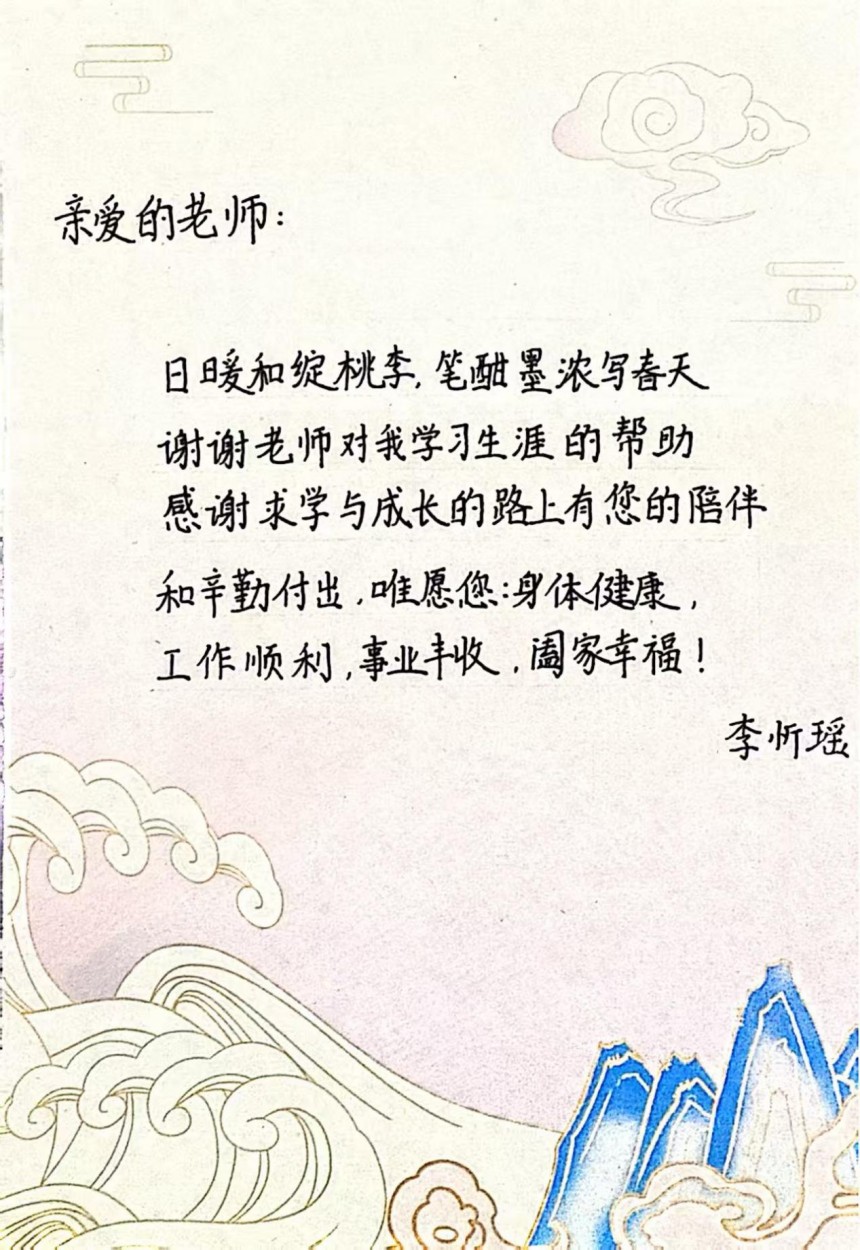 亲爱的老师：
日暖和绽桃李，笔酣墨浓写春天
谢谢老师对我学习生涯的帮助
感谢求学与成长的路上有您的陪伴
和辛勤付出，唯愿您：身体健康，
工作顺利，事业丰收，阖家幸福！
李忻瑶